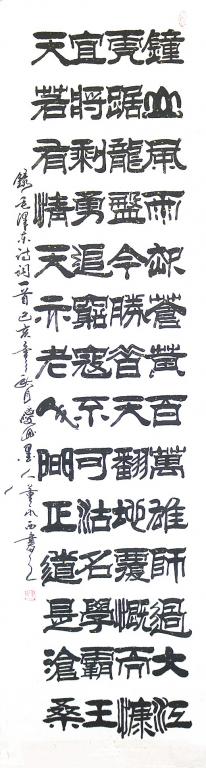 鐘山風雨起蒼黃百萬雄師過大江
虎踞龍盤今勝昔天翻地覆慨而慷
宜將剩勇追窮寇不可沽名學霸王
天若有情天亦老人間正道是滄桑
錄毛澤東诗词一首己亥年月墨人董永西書